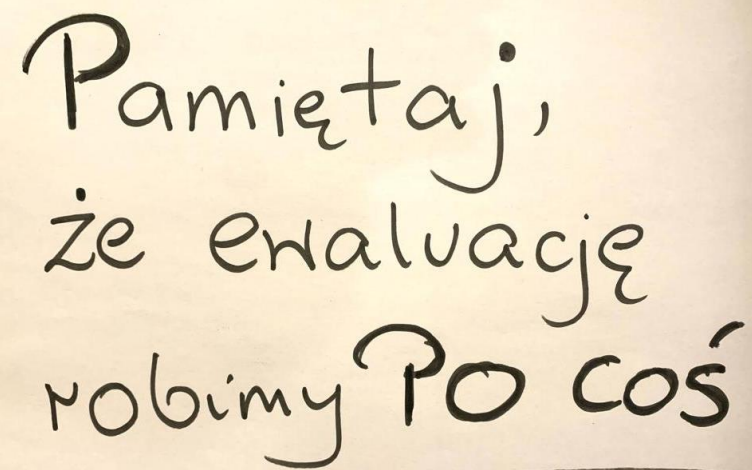 Pamiętaj,
że ewaluację
robimy PO coś